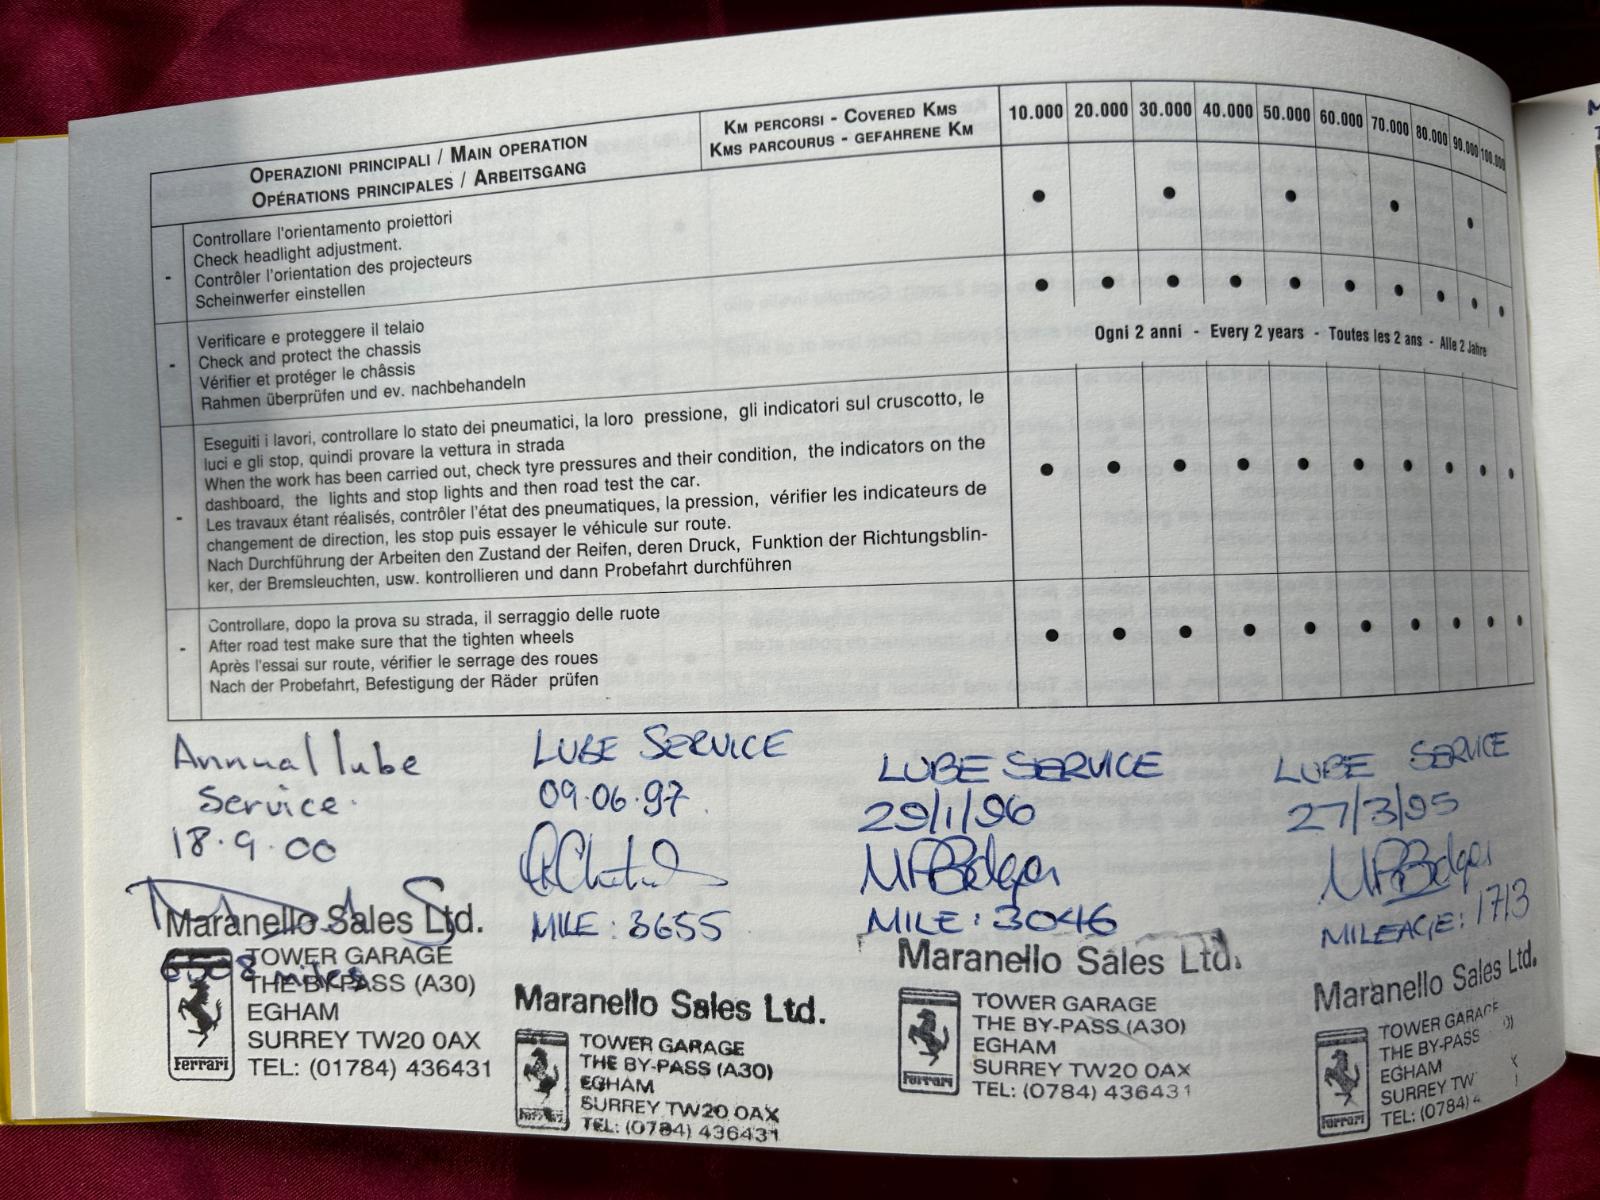 OPERAZIONI PRINCIPALI / MAIN OPERATION
OPÉRATIONS PRINCIPALES / ARBEITSGANG
KM PERCORSI - COVERED KMS
KMS PARCOURUS - GEFAHRENE KM
10.000 20.000 30.000 40.000 50.000 60.000 70.000 80.000 90.000 100.000
- Controllare l'orientamento proiettori
Check headlight adjustment.
Contrôler l'orientation des projecteurs
Scheinwerfer einstellen
- Verificare e proteggere il telaio
Check and protect the chassis
Vérifier et protéger le châssis
Rahmen überprüfen und ev. nachbehandeln
Ogni 2 anni - Every 2 years - Toutes les 2 ans - Alle 2 Jahre
- Eseguiti i lavori, controllare lo stato dei pneumatici, la loro pressione, gli indicatori sul cruscotto, le
luci e gli stop, quindi provare la vettura in strada
When the work has been carried out, check tyre pressures and their condition, the indicators on the
dashboard, the lights and stop lights and then road test the car.
- Les travaux étant réalisés, contrôler l'état des pneumatiques, la pression, vérifier les indicateurs de
changement de direction, les stop puis essayer le véhicule sur route.
Nach Durchführung der Arbeiten den Zustand der Reifen, deren Druck, Funktion der Richtungsblin-
ker, der Bremsleuchten, usw. kontrollieren und dann Probefahrt durchführen
- Controllare, dopo la prova su strada, il serraggio delle ruote
After road test make sure that the tighten wheels
Après l'essai sur route, vérifier le serrage des roues
Nach der Probefahrt, Befestigung der Räder prüfen
Annual lube
Service.
18.9.00
Maranello Sales Ltd.
miles
TOWER GARAGE
THE BY-PASS (A30)
EGHAM
SURREY TW20 0AX
TEL: (01784) 436431
Ferrari
LUBE SERVICE
09.06.97
MILE: 3655
Maranello Sales Ltd.
TOWER GARAGE
THE BY-PASS (A30)
EGHAM
SURREY TW20 0AX
TEL: (0784) 436431
Ferrari
LUBE SERVICE
29/1/96
MILE: 3046
Maranello Sales Ltd.
TOWER GARAGE
THE BY-PASS (A30)
EGHAM
SURREY TW20 0AX
TEL: (0784) 436431
Ferrari
LUBE SERVICE
27/3/95
MILEAGE: 1713
Maranello Sales Ltd.
TOWER GARAGE
THE BY-PASS
EGHAM
SURREY TW
TEL: (0784) 4
Ferrari